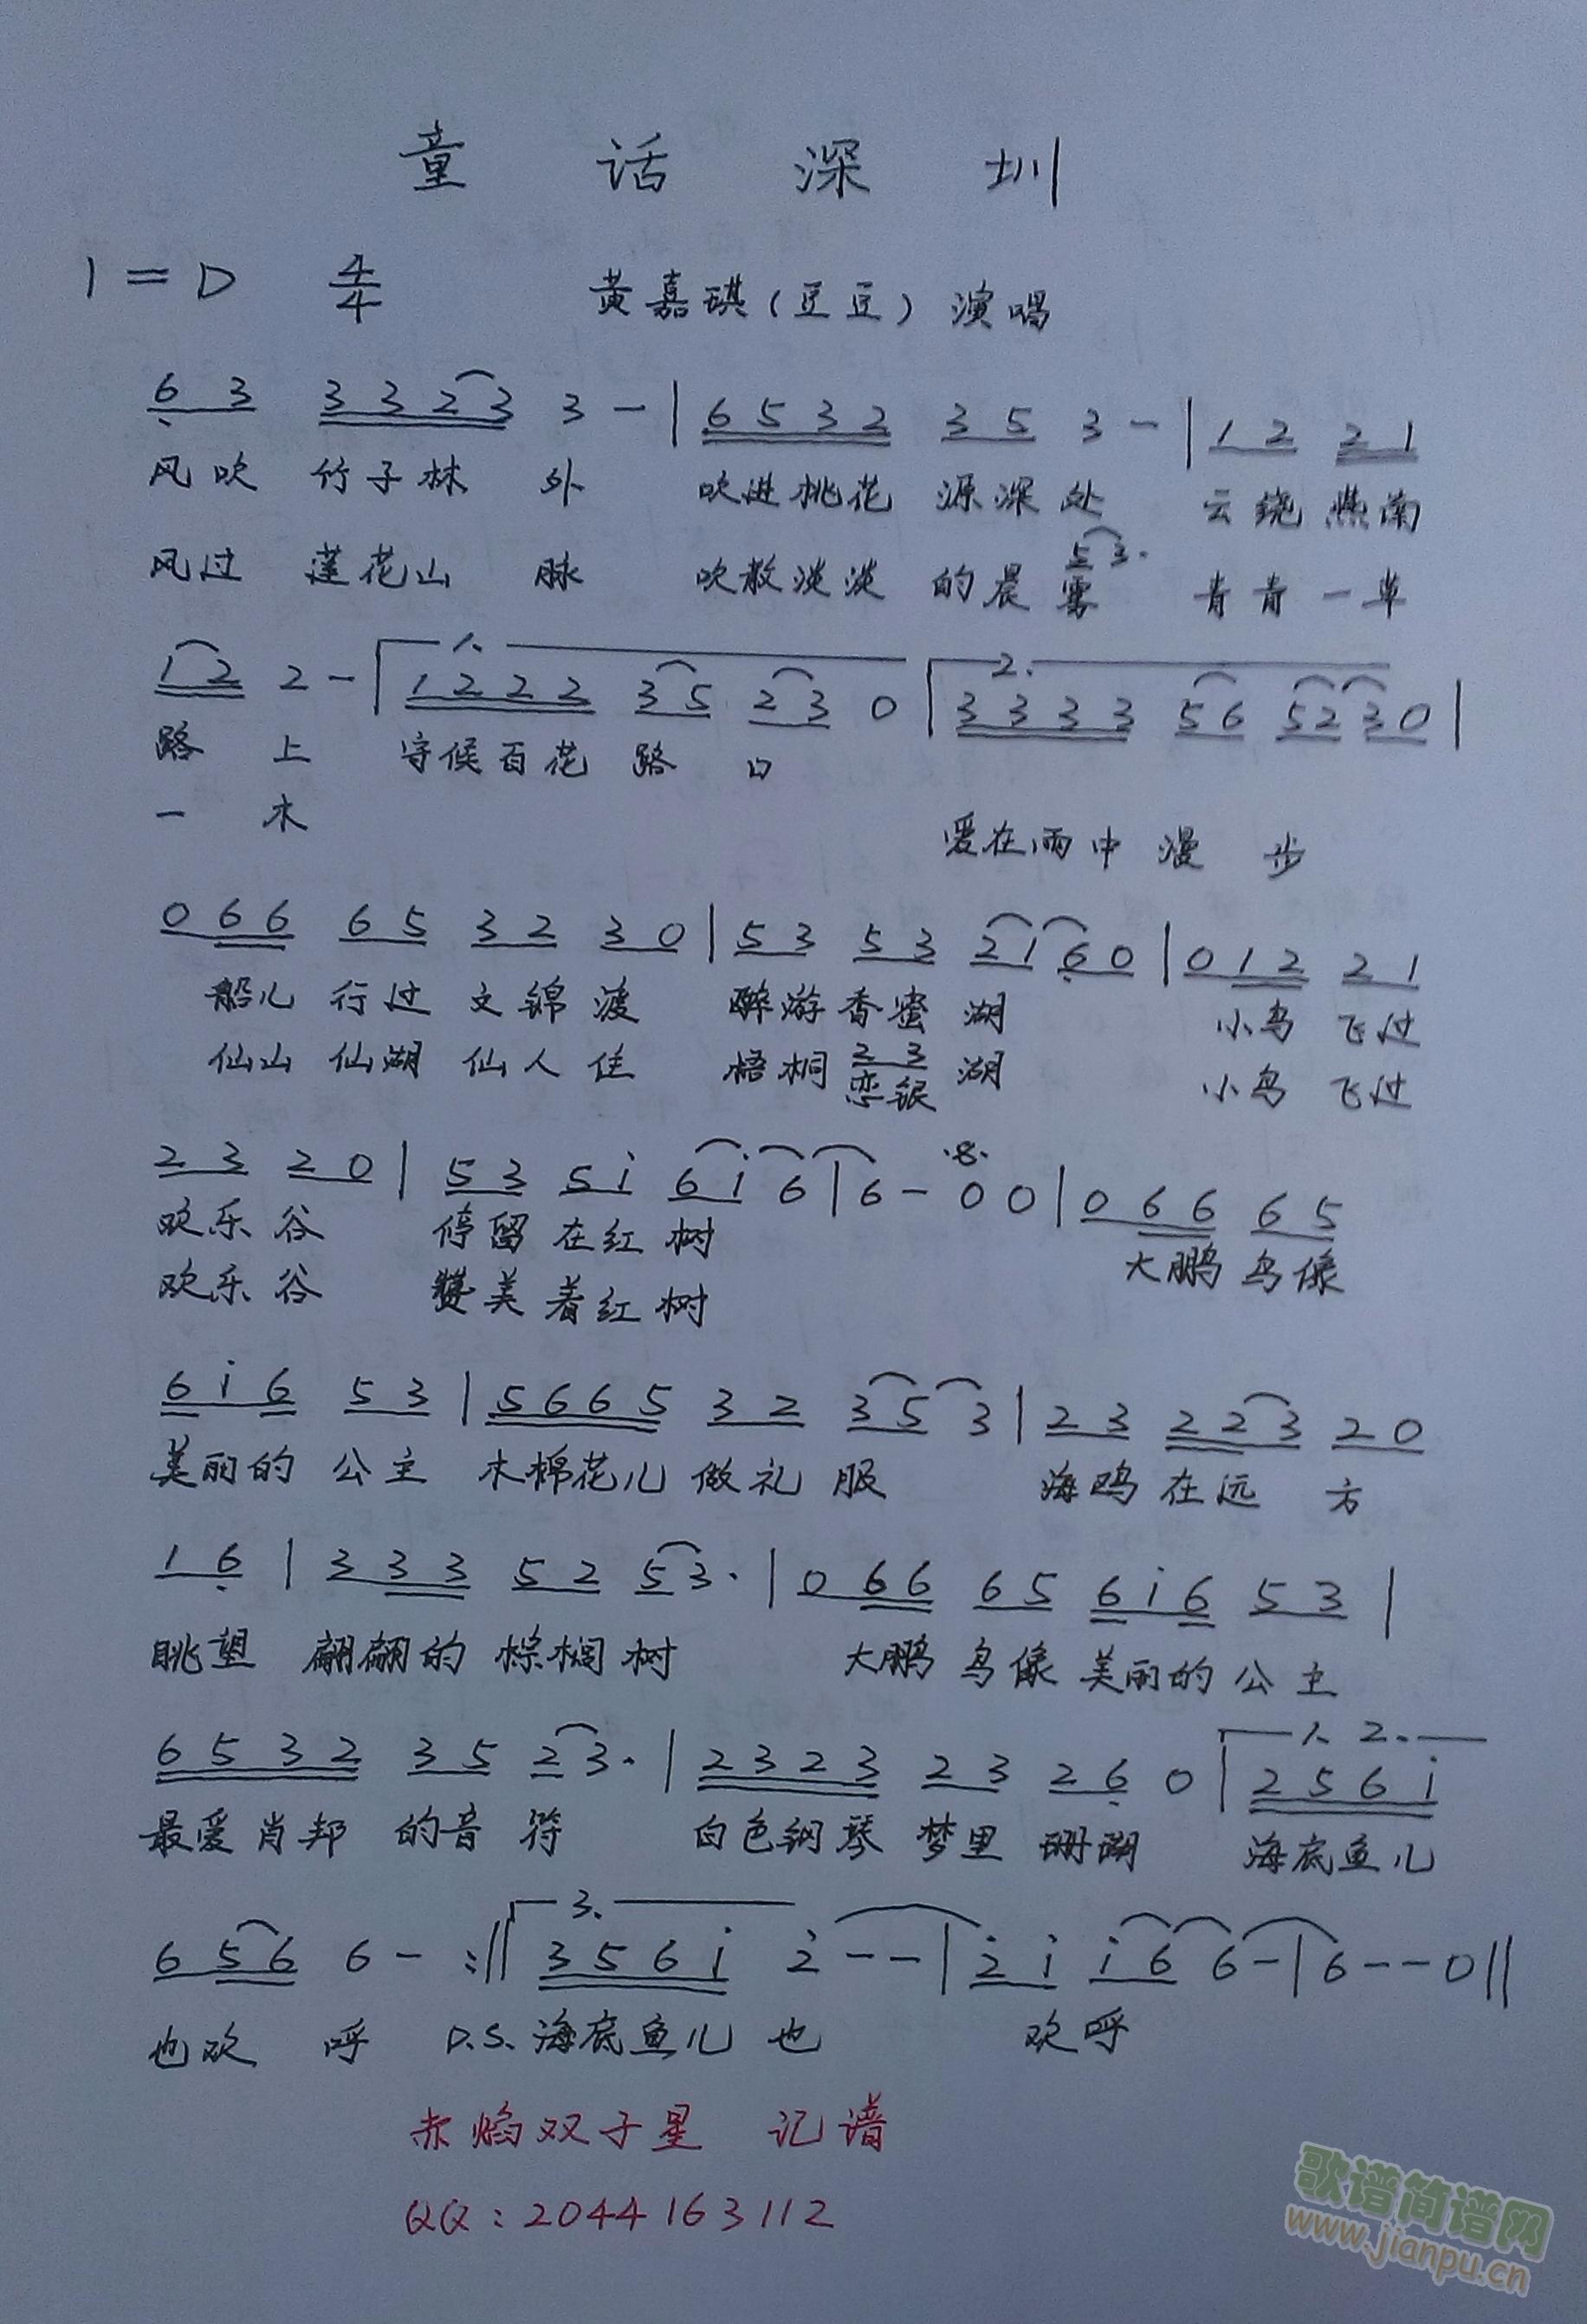 童话深圳
1=D 4/4 黄嘉琪(豆豆)演唱
6 3 3 3 2 3 3 - | 6 5 3 2 3 5 3 - | 1 2 2 1
风吹 竹子林 外 吹进桃花 源深处 云绕燕南
5 3·
风过 莲花山 脉 吹散淡淡 的晨雾 青青一草
1. 2.
1 2 2 - | 1 2 2 2 3 5 2 3 0 | 3 3 3 3 5 6 5 2 3 0 |
路 上 守候百花 路 口
一 木 爱在雨中 漫 步
0 6 6 6 5 3 2 3 0 | 5 3 5 3 2 1 6 0 | 0 1 2 2 1
船儿 行过 文锦渡 醉游香蜜湖 小鸟 飞过
2 3
仙山 仙湖 仙人住 梧桐恋银湖 小鸟 飞过
2 3 2 0 | 5 3 5 i 6 i 6 | 6 - 0 0 | 0 6 6 6 5
欢乐谷 停留在红树 大鹏鸟像
欢乐谷 赞美着红树
6 i 6 5 3 | 5 6 6 5 3 2 3 5 3 | 2 3 2 2 3 2 0
美丽的 公主 木棉花儿 做礼 服 海鸥在远 方
1 6 | 3 3 3 5 2 5 3· | 0 6 6 6 5 6 i 6 5 3 |
眺望 翩翩的 棕榈树 大鹏 鸟像 美丽的 公主
1. 2.
6 5 3 2 3 5 2 3· | 2 3 2 3 2 3 2 6 0 | 2 5 6 i
最爱肖邦 的音 符 白色钢琴 梦里 珊瑚 海底鱼儿
3.
6 5 6 6 - :‖ 3 5 6 i 2 - - | 2 i i 6 6 - | 6 - - 0 ‖
也欢 呼 D.S. 海底鱼儿 也 欢呼
赤焰双子星 记谱
QQ:2044163112
歌谱简谱网
www.jianpu.cn